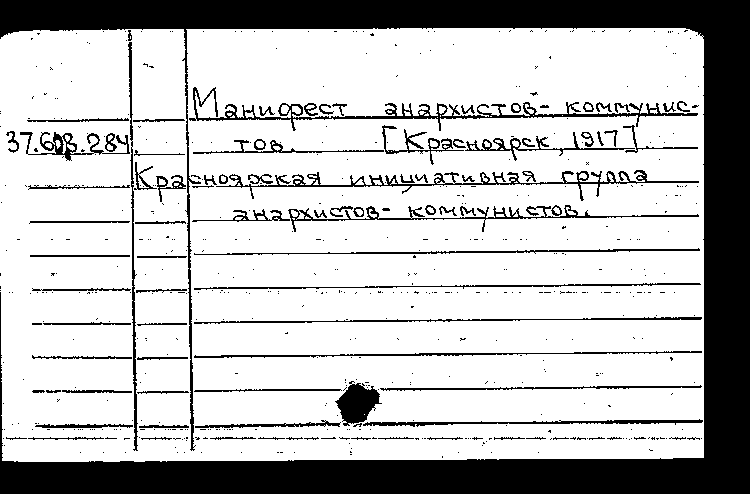 Манифест анархистов-коммунис-
37.603.284. тов. [Красноярск, 1917]
Красноярская инициативная группа
анархистов-коммунистов.